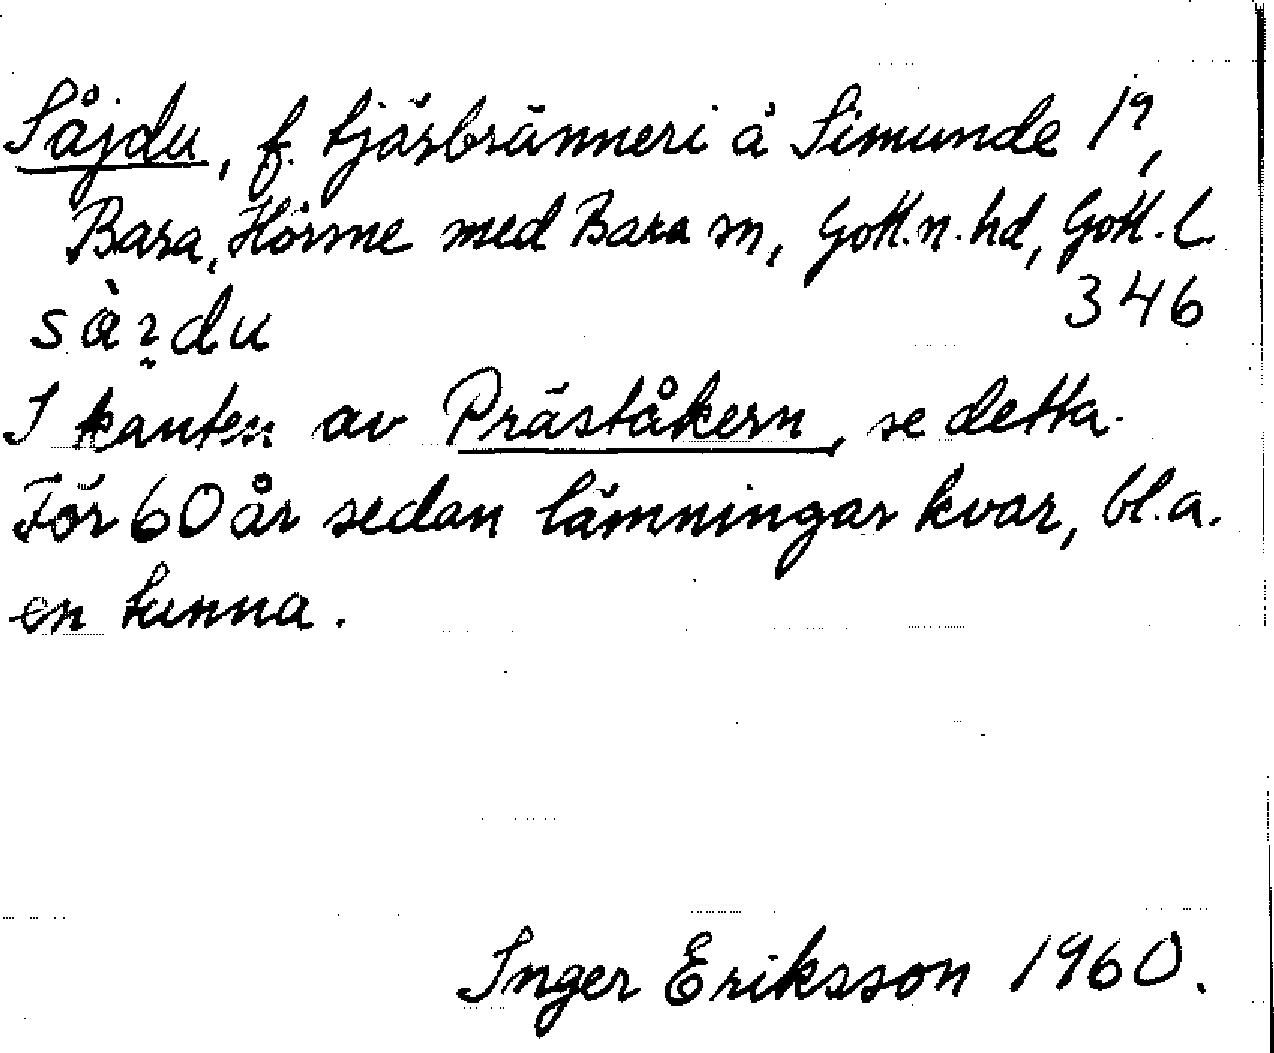 Såjdu, f. tjärbränneri å Simunde 1⁹,
Bara, Hörsne med Bara sn, Gotl. n. hd, Gotl. l.
346
I kanten av Präståkern, se detta.
För 60 år sedan lämningar kvar, bl.a.
en tunna.
Inger Eriksson 1960.